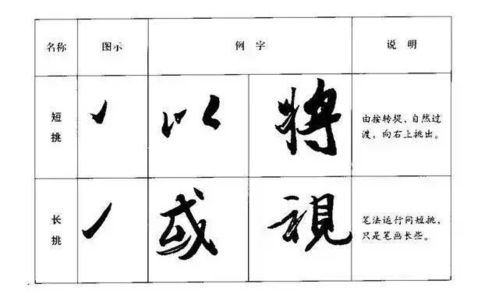 名称 图示 例字 说明
短挑 以 将 由按转提、自然过
渡，向右上挑出。
长挑 或 視 笔法运行同短挑，
只是笔画长些。